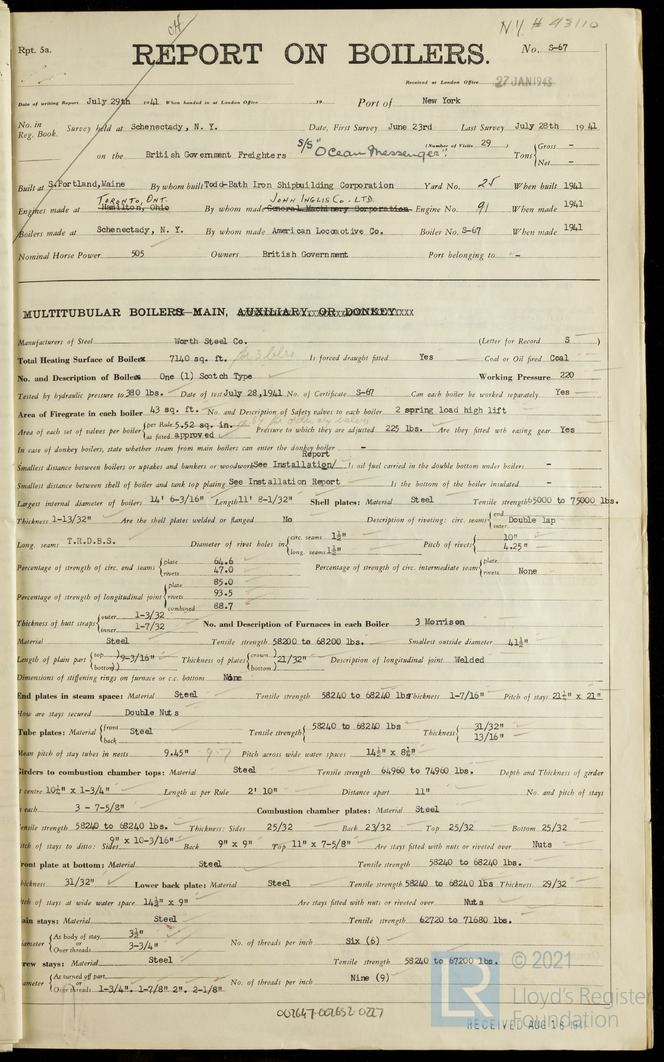 NY # 93110
Rpt. 5a.
REPORT ON BOILERS.
No. S-67
Received at London Office 27 JAN 1943
Date of writing Report July 29th 1941 When handed in at London Office 19 Port of New York
No. in Reg. Book. Survey held at Schenectady, N. Y. Date, First Survey June 23rd Last Survey July 28th 1941
(Number of Visits 29 )
on the British Government Freighters S/S "Ocean Messenger". Tons { Gross - Net -
Built at S.Portland,Maine By whom built Todd-Bath Iron Shipbuilding Corporation Yard No. 25 When built 1941
TORONTO, ONT. JOHN INGLIS CO. LTD.
Engines made at Hamilton, Ohio By whom made General Machinery Corporation Engine No. 91 When made 1941
Boilers made at Schenectady, N. Y. By whom made American Locomotive Co. Boiler No. S-67 When made 1941
Nominal Horse Power 505 Owners British Government Port belonging to -
MULTITUBULAR BOILERS MAIN, AUXILIARY, OR DONKEY
Manufacturers of Steel Worth Steel Co. (Letter for Record S )
Total Heating Surface of Boilers 7140 sq. ft. Is forced draught fitted Yes Coal or Oil fired Coal
No. and Description of Boilers One (1) Scotch Type Working Pressure 220
Tested by hydraulic pressure to 380 lbs. Date of test July 28,1941 No. of Certificate S-67 Can each boiler be worked separately Yes
Area of Firegrate in each boiler 43 sq. ft. No. and Description of Safety valves to each boiler 2 spring load high lift
Area of each set of valves per boiler { per Rule 5.52 sq. in. as fitted approved Pressure to which they are adjusted 225 lbs. Are they fitted with easing gear Yes
In case of donkey boilers, state whether steam from main boilers can enter the donkey boiler -
Smallest distance between boilers or uptakes and bunkers or woodwork See Installation/ Report Is oil fuel carried in the double bottom under boilers -
Smallest distance between shell of boiler and tank top plating See Installation Report Is the bottom of the boiler insulated -
Largest internal diameter of boilers 14' 6-3/16" Length 11' 8-1/32" Shell plates: Material Steel Tensile strength 65000 to 75000 lbs.
Thickness 1-13/32" Are the shell plates welded or flanged No Description of riveting: circ. seams { end Double lap inter.
Long. seams T.R.D.B.S. Diameter of rivet holes in { circ. seams 1½" long. seams 1½" Pitch of rivets { 10" 4.25"
Percentage of strength of circ. end seams { plate 64.6 rivets 47.0 Percentage of strength of circ. intermediate seam { plate rivets None
Percentage of strength of longitudinal joint { plate 85.0 rivets 93.5 combined 88.7
Thickness of butt straps { outer 1-3/32 inner 1-7/32 No. and Description of Furnaces in each Boiler 3 Morrison
Material Steel Tensile strength 58200 to 68200 lbs. Smallest outside diameter 41½"
Length of plain part { top bottom } 9-3/16" Thickness of plates { crown bottom } 21/32" Description of longitudinal joint Welded
Dimensions of stiffening rings on furnace or c.c. bottom None
End plates in steam space: Material Steel Tensile strength 58240 to 68240 lbs Thickness 1-7/16" Pitch of stays 21½" x 21"
How are stays secured Double Nuts
Tube plates: Material { front back Steel Tensile strength { 58240 to 68240 lbs Thickness { 31/32" 13/16"
Mean pitch of stay tubes in nests 9.45" Pitch across wide water spaces 14½" x 8¼"
Girders to combustion chamber tops: Material Steel Tensile strength 64960 to 74960 lbs. Depth and Thickness of girder
t centre 10½" x 1-3/4" Length as per Rule 2' 10" Distance apart 11" No. and pitch of stays
n each 3 - 7-5/8" Combustion chamber plates: Material Steel
Tensile strength 58240 to 68240 lbs. Thickness: Sides 25/32 Back 23/32 Top 25/32 Bottom 25/32
Pitch of stays to ditto: Sides 9" x 10-3/16" Back 9" x 9" Top 11" x 7-5/8" Are stays fitted with nuts or riveted over Nuts
Front plate at bottom: Material Steel Tensile strength 58240 to 68240 lbs.
Thickness 31/32" Lower back plate: Material Steel Tensile strength 58240 to 68240 lbs Thickness 29/32
Pitch of stays at wide water space 14½" x 9" Are stays fitted with nuts or riveted over Nuts
Main stays: Material Steel Tensile strength 62720 to 71680 lbs.
Diameter { At body of stay 3½" or Over threads 3-3/4" No. of threads per inch Six (6)
Screw stays: Material Steel Tensile strength 58240 to 67200 lbs.
Diameter { At turned off part or Over threads 1-3/4". 1-7/8" 2". 2-1/8" No. of threads per inch Nine (9)
002647-002652-0227
RECEIVED AUG 16 1941
LR © 2021
Lloyd's Register
Foundation